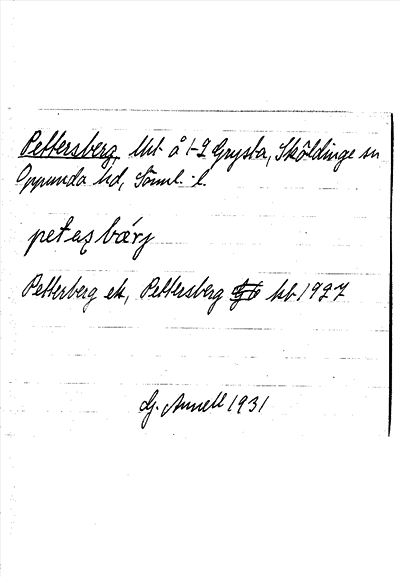 Pettersberg, lht å 1-2 Grysta, Sköldinge sn
Oppunda hd, Söml. l.
petaʂbärj
Petterberg ek, Pettersberg hb 1927
G. Annell 1931